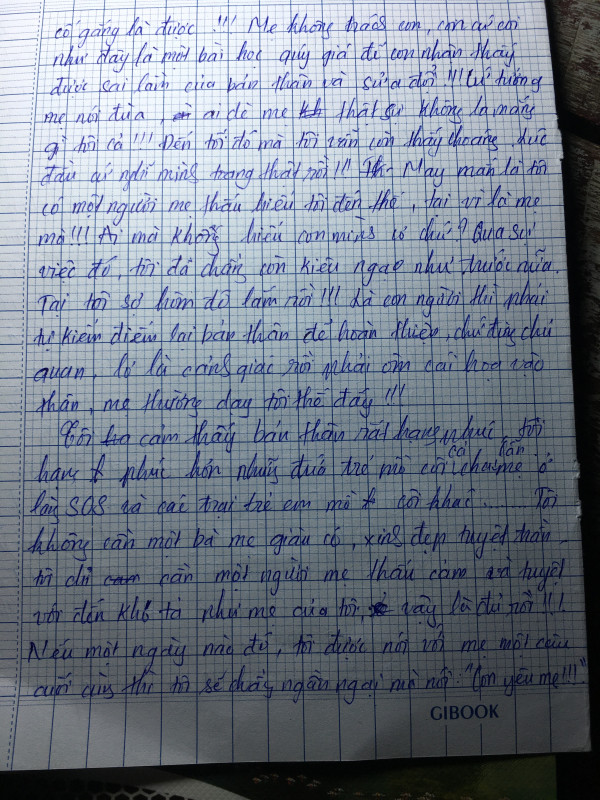 cố gắng là được !!! Mẹ không trách con, con cứ coi
như đây là một bài học quý giá để con nhận thấy
được sai lầm của bản thân và sửa đổi !!! Cứ tưởng
mẹ nói đùa, ai dè mẹ thật sự không la mắng
gì tôi cả !!! Đến tối đó mà tôi vẫn còn thấy choáng, lúc
đầu cứ nghĩ mình trong thật rồi !!! May mắn là tôi
có một người mẹ thấu hiểu tôi đến thế, tại vì là mẹ
mà !!! Ai mà không hiểu con mình cơ chứ ? Qua sự
việc đó, tôi đã chẳng còn kiêu ngạo như trước nữa.
Tại tôi sợ hôm đó lắm rồi !!! Là con người thì phải
tự kiểm điểm lại bản thân để hoàn thiện, chứ đừng chủ
quan, lơ là cảnh giác rồi phải ôm cái họa vào
thân, mẹ thường dạy tôi thế đấy !!!
Tôi cảm thấy bản thân rất hạnh phúc, tôi
hạnh phúc hơn những đứa trẻ mồ côi cả cha lẫn mẹ ở
làng SOS và các trại trẻ em mồ côi khác ...... Tôi
không cần một bà mẹ giàu có, xinh đẹp tuyệt trần
tôi chỉ cần một người mẹ thấu cảm và tuyệt
vời đến khó tả như mẹ của tôi, vậy là đủ rồi !!!
Nếu một ngày nào đó, tôi được nói với mẹ một câu
cuối cùng thì tôi sẽ chẳng ngần ngại mà nói: "Con yêu mẹ !!!"
GIBOOK